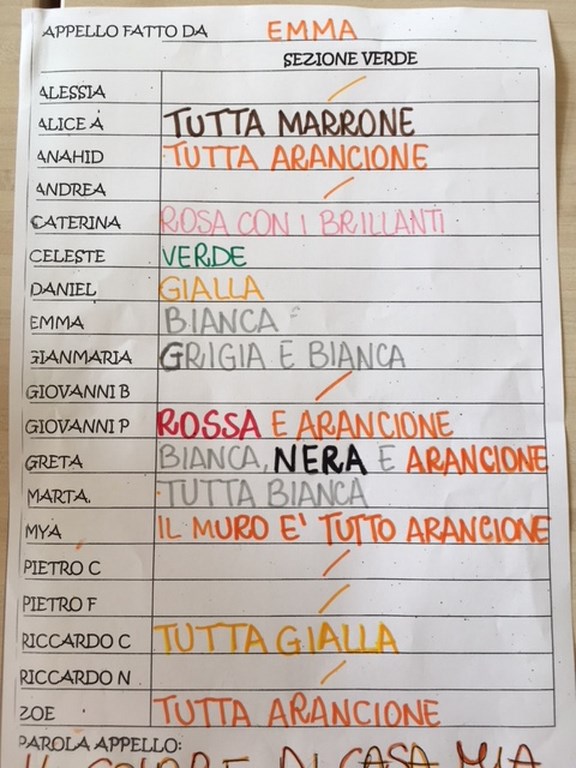 APPELLO FATTO DA EMMA
SEZIONE VERDE
ALESSIA /
ALICE A TUTTA MARRONE
ANAHID TUTTA ARANCIONE
ANDREA /
CATERINA ROSA CON I BRILLANTI
CELESTE VERDE
DANIEL GIALLA
EMMA BIANCA
GIANMARIA GRIGIA E BIANCA
GIOVANNI B /
GIOVANNI P ROSSA E ARANCIONE
GRETA BIANCA, NERA E ARANCIONE
MARTA. TUTTA BIANCA
MYA IL MURO E' TUTTO ARANCIONE
PIETRO C /
PIETRO F /
RICCARDO C TUTTA GIALLA
RICCARDO N /
ZOE TUTTA ARANCIONE
PAROLA APPELLO:
IL COLORE DI CASA MIA